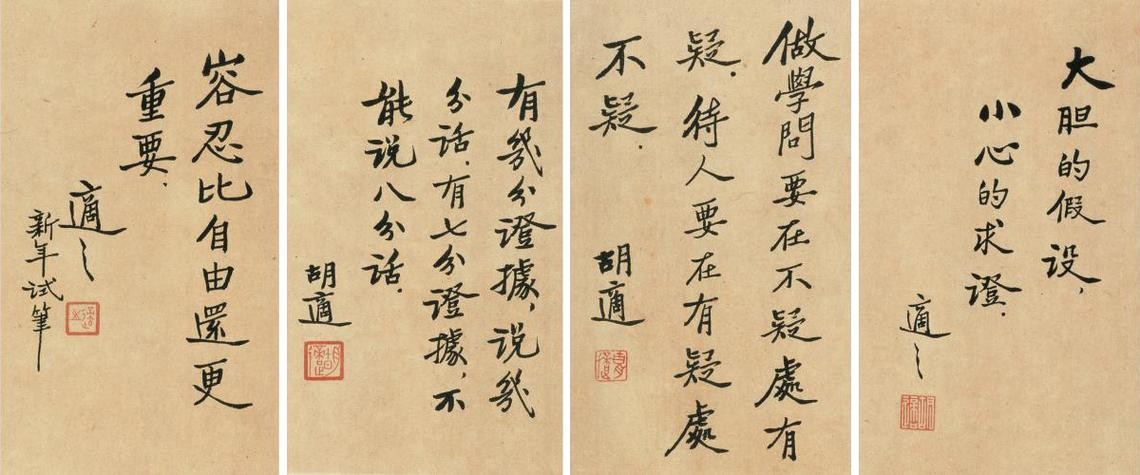 大胆的假设，
小心的求證．
適之
做學問要在不疑處有
疑．待人要在有疑處
不疑．
胡適
有幾分證據，说幾
分话．有七分證據，不
能说八分话．
胡適
容忍比自由還更
重要．
適之
新年试筆